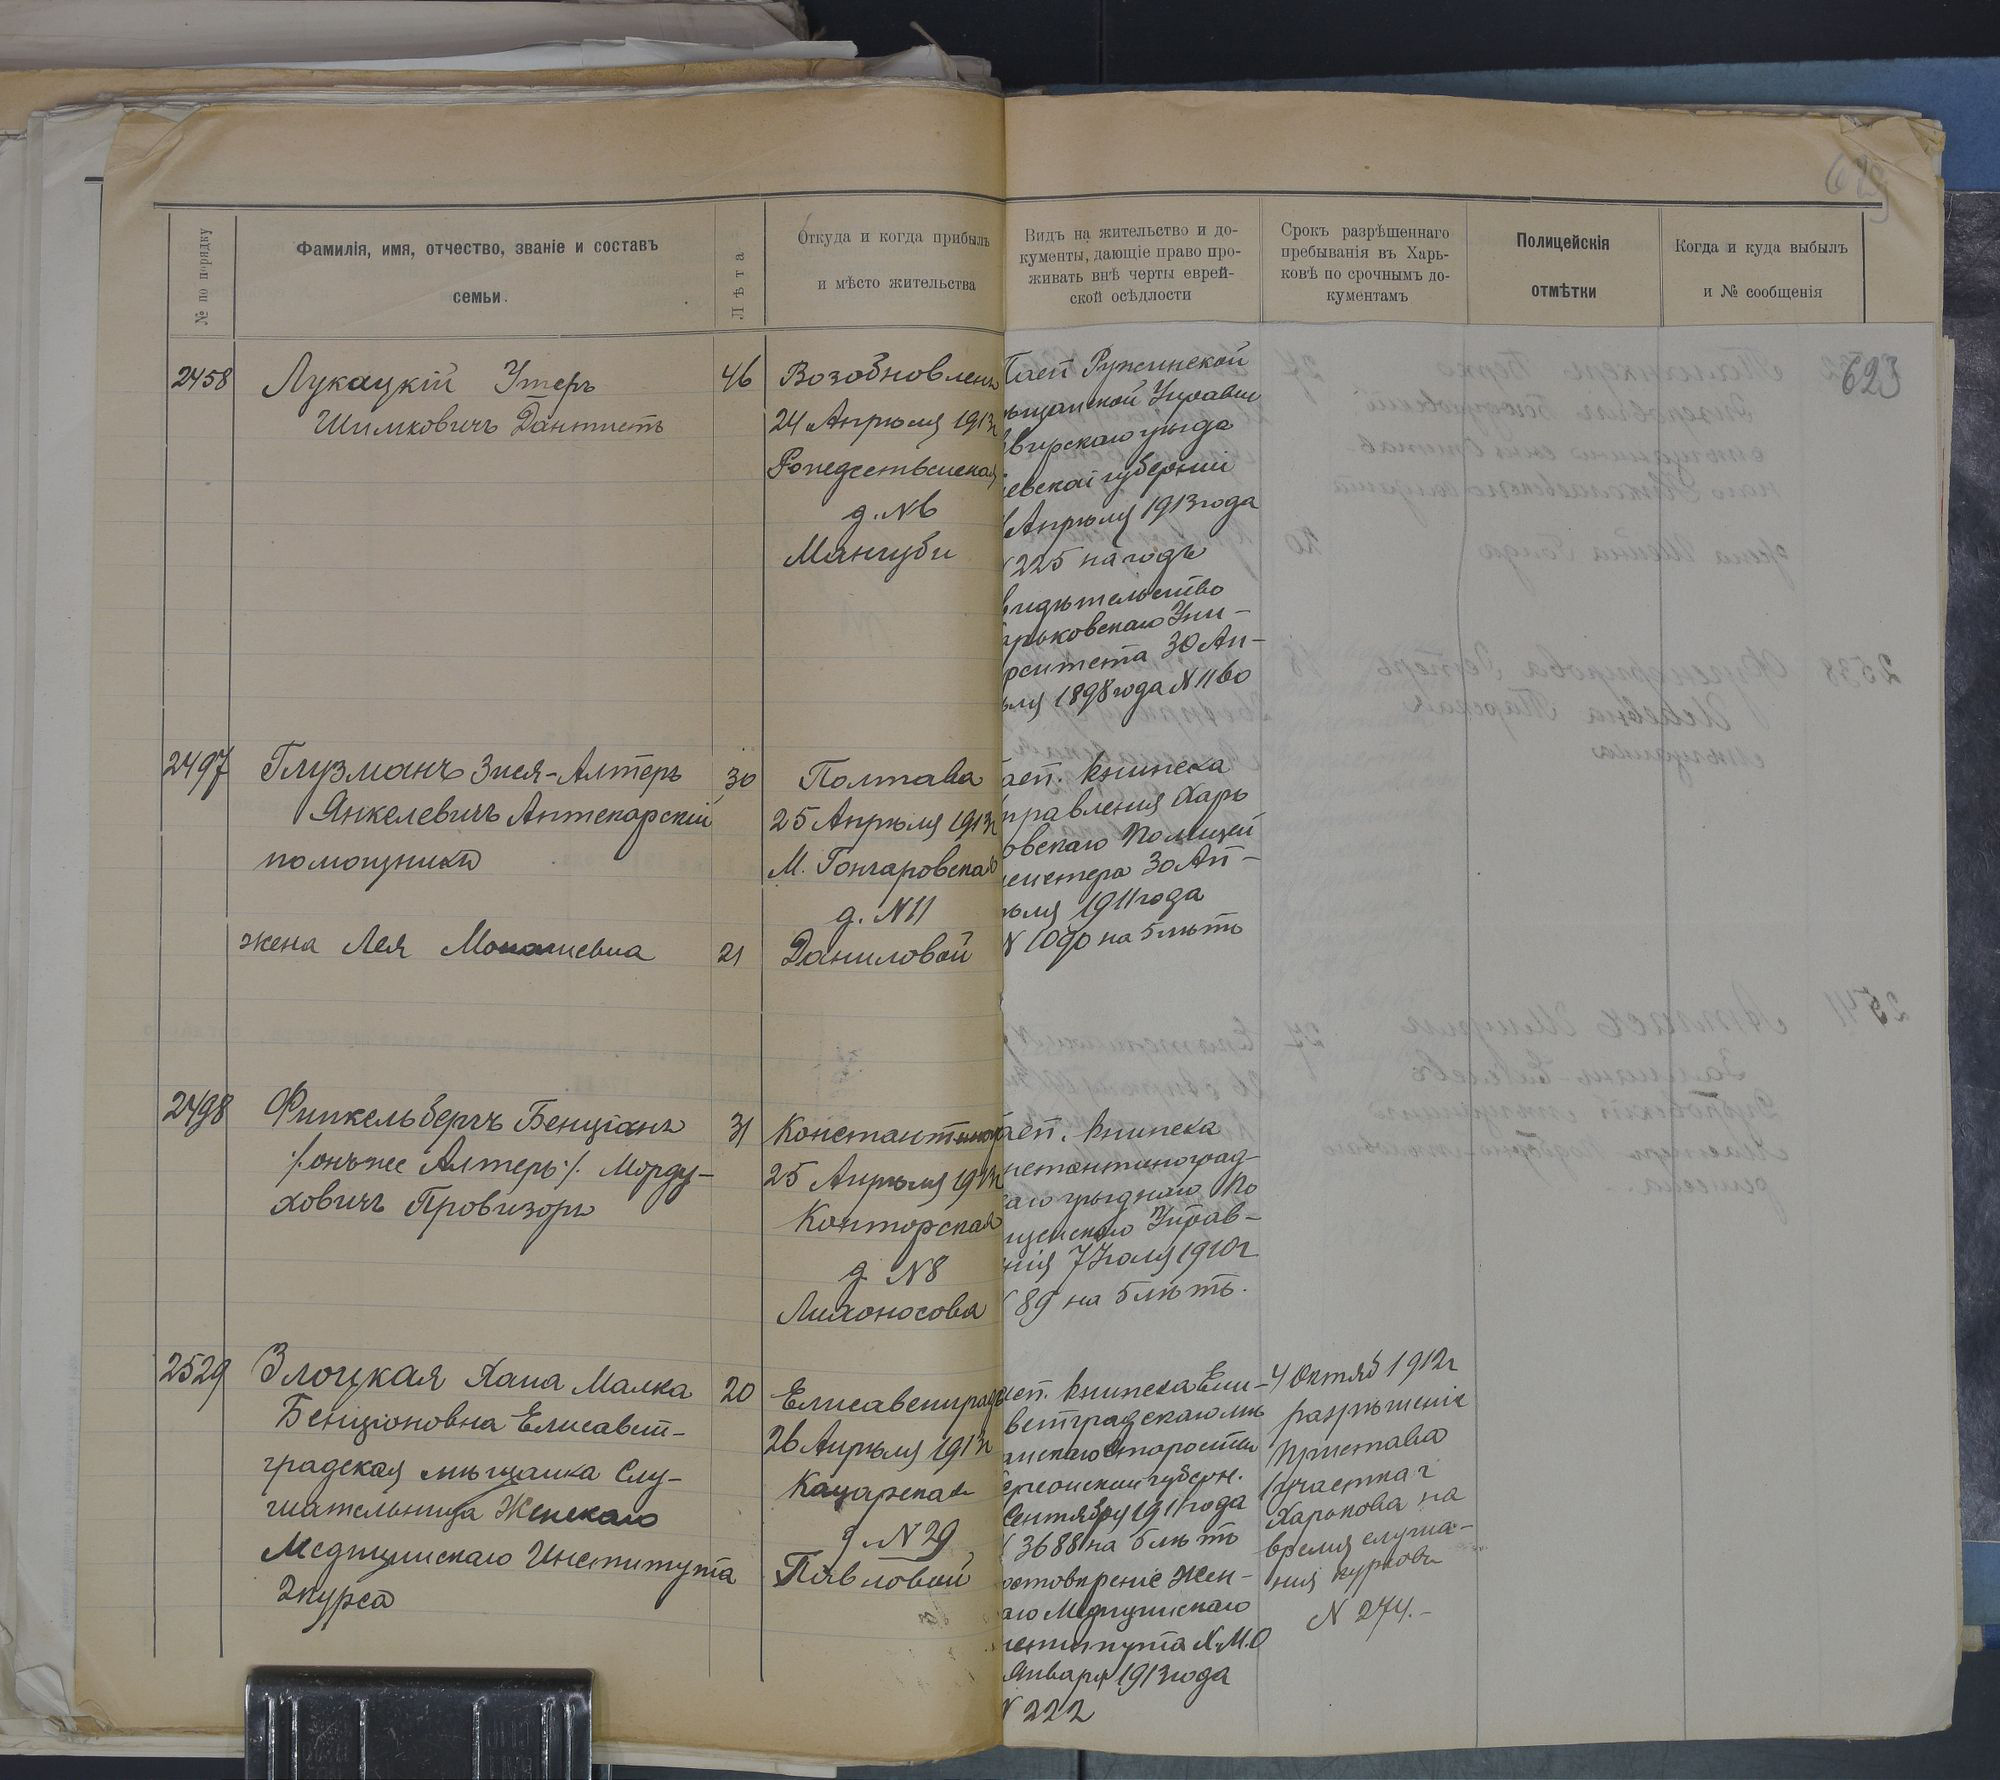 623
№ по порядку
Фамилія, имя, отчество, званіе и составъ
семьи.
Лѣта
Откуда и когда прибылъ
и мѣсто жительства
Видъ на жительство и до-
кументы, дающіе право про-
живать внѣ черты еврей-
ской осѣдлости
Срокъ разрѣшеннаго
пребыванія въ Харь-
ковѣ по срочнымъ до-
кументамъ
Полицейскія
отмѣтки
Когда и куда выбылъ
и № сообщенія
623
2458
Лукацкій Утеръ
Шимковичъ Дантистъ
46
Возобновленъ
24 Апрѣля 1913г
Рождественская
д. №6
Мангуби
Пасп Ружинской
ѣщанской Управы
вирскаго уѣзда
евской губерніи
Апрѣля 1913 года
225 на годъ
видѣтельство
арьковскаго Уни-
рситета 30 Ап-
ѣля 1898 года N 1160
2497
Глузманъ Зися-Алтеръ
Янкелевичъ Аптекарскій
помощникъ
30
Полтава
25 Апрѣля 1913г
М. Гончаровская
д. N 11
жена Лея
21
Даниловой
асп. книжка
правленія Харь
овскаго Полицей
мейстера 30 Ап-
ѣля 1911 года
N 1090 на 5 лѣтъ
2498
Финкельбергъ Бенціанъ
/. онъже Алтеръ ./. Морду-
ховичъ Провизоръ
31
Константиног
25 Апрѣля 1913г
Конторская
д. N 8
Лихоносова
асп. книжка
нстантиноград-
каго уѣзднаго По
ицейскаго Управ-
нія 7 Іюля 1910г
89 на 5 лѣтъ.
2529
Злоцкая Хана Малка
Бенціоновна Елисавет-
градская мѣщанка Слу-
шательница Женскаго
Медицинскаго Института
2 курса
20
Елисаветградъ
26 Апрѣля 1913г
Кацарская
д. N 29
Павловой
асп. книжка Ели-
ветградскаго мѣ
анскаго Старосты
ерсонской губерн.
Сентября 1911 года
3688 на 5 лѣтъ
остовѣреніе Жен-
аго Медицинскаго
нститута Х.М.О
Января 1913 года
N 222
4 Октяб 1912г
разрѣшеніе
Пристава
1 участка г
Харькова на
время слуша-
нія курсовъ
N 274.-